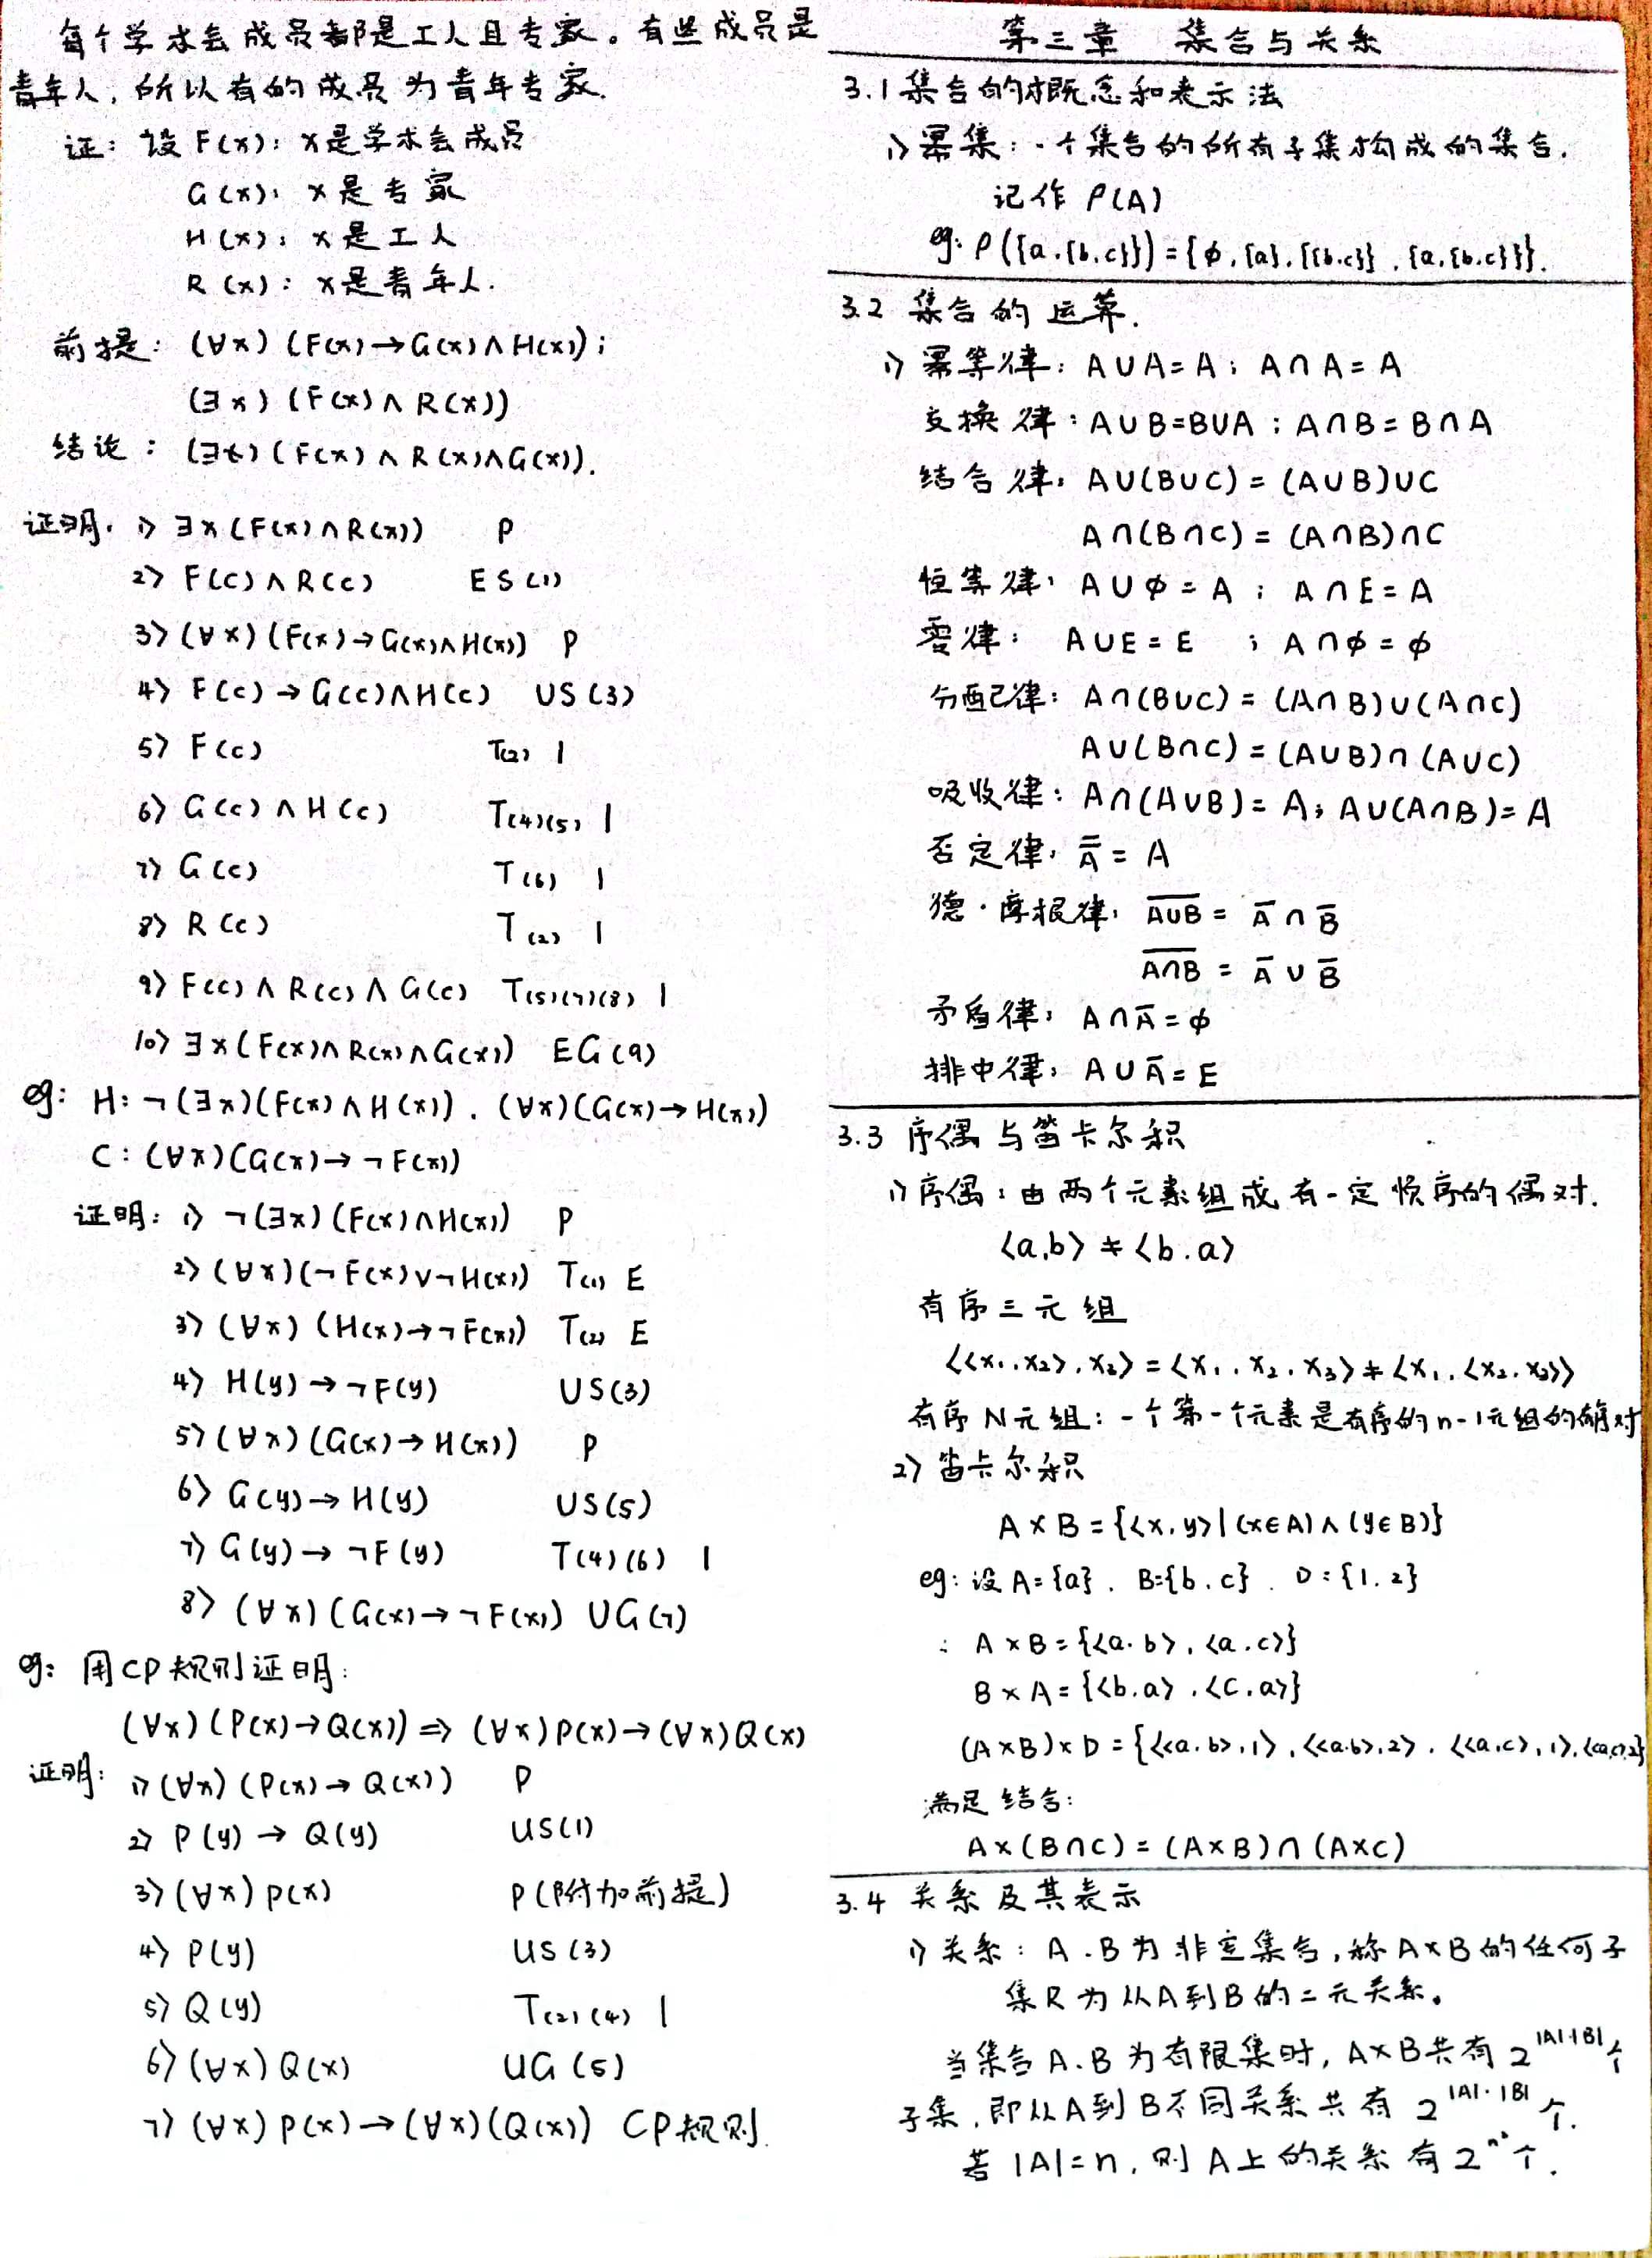 每个学术会成员都是工人且专家。有些成员是
青年人,所以有的成员为青年专家.
证: 设 F(x): x是学术会成员
G(x): x是专家
H(x): x是工人
R(x): x是青年人.
前提: (∀x)(F(x)→G(x)∧H(x));
(∃x)(F(x)∧R(x))
结论: (∃x)(F(x)∧R(x)∧G(x)).
证明. 1) ∃x(F(x)∧R(x)) P
2) F(c)∧R(c) ES(1)
3) (∀x)(F(x)→G(x)∧H(x)) P
4) F(c)→G(c)∧H(c) US(3)
5) F(c) T(2) I
6) G(c)∧H(c) T(4)(5) I
7) G(c) T(6) I
8) R(c) T(2) I
9) F(c)∧R(c)∧G(c) T(5)(7)(8) I
10) ∃x(F(x)∧R(x)∧G(x)) EG(9)
eg: H: ¬(∃x)(F(x)∧H(x)). (∀x)(G(x)→H(x))
C: (∀x)(G(x)→¬F(x))
证明: 1) ¬(∃x)(F(x)∧H(x)) P
2) (∀x)(¬F(x)∨¬H(x)) T(1) E
3) (∀x)(H(x)→¬F(x)) T(2) E
4) H(y)→¬F(y) US(3)
5) (∀x)(G(x)→H(x)) P
6) G(y)→H(y) US(5)
7) G(y)→¬F(y) T(4)(6) I
8) (∀x)(G(x)→¬F(x)) UG(7)
eg: 用CP规则证明:
(∀x)(P(x)→Q(x))⇒(∀x)P(x)→(∀x)Q(x)
证明: 1) (∀x)(P(x)→Q(x)) P
2) P(y)→Q(y) US(1)
3) (∀x)P(x) P(附加前提)
4) P(y) US(3)
5) Q(y) T(2)(4) I
6) (∀x)Q(x) UG(5)
7) (∀x)P(x)→(∀x)(Q(x)) CP规则.
第三章 集合与关系
3.1 集合的概念和表示法
1) 幂集: 一个集合的所有子集构成的集合.
记作 P(A)
eg: P({a,{b,c}})={φ,{a},{{b,c}},{a,{b,c}}}.
3.2 集合的运算.
1) 幂等律: A∪A=A; A∩A=A
交换律: A∪B=B∪A; A∩B=B∩A
结合律: A∪(B∪C)=(A∪B)∪C
A∩(B∩C)=(A∩B)∩C
恒等律: A∪φ=A; A∩E=A
零律: A∪E=E; A∩φ=φ
分配律: A∩(B∪C)=(A∩B)∪(A∩C)
A∪(B∩C)=(A∪B)∩(A∪C)
吸收律: A∩(A∪B)=A; A∪(A∩B)=A
否定律: A̿=A
德·摩根律: A̅∪̅B̅=A̅∩B̅
A̅∩̅B̅=A̅∪B̅
矛盾律: A∩A̅=φ
排中律: A∪A̅=E
3.3 序偶与笛卡尔积
1) 序偶: 由两个元素组成有一定顺序的偶对.
<a,b>≠<b.a>
有序三元组
<<x₁,x₂>,x₃>=<x₁,x₂,x₃>≠<x₁,<x₂,x₃>>
有序N元组: 一个第一个元素是有序的n-1元组的偶对
2) 笛卡尔积
A×B={<x,y>|(x∈A)∧(y∈B)}
eg: 设A={a}. B={b.c}. D={1.2}
∴ A×B={<a.b>,<a.c>}
B×A={<b.a>,<c.a>}
(A×B)×D={<<a.b>,1>,<<a.b>,2>,<<a,c>,1>,<<a,c>,2>}
满足结合:
A×(B∩C)=(A×B)∩(A×C)
3.4 关系及其表示
1) 关系: A.B为非空集合,称A×B的任何子
集R为从A到B的二元关系。
当集合A.B为有限集时,A×B共有2^|A|·|B|个
子集,即从A到B不同关系共有2^|A|·|B|个.
若|A|=n,则A上的关系有2^n²个.